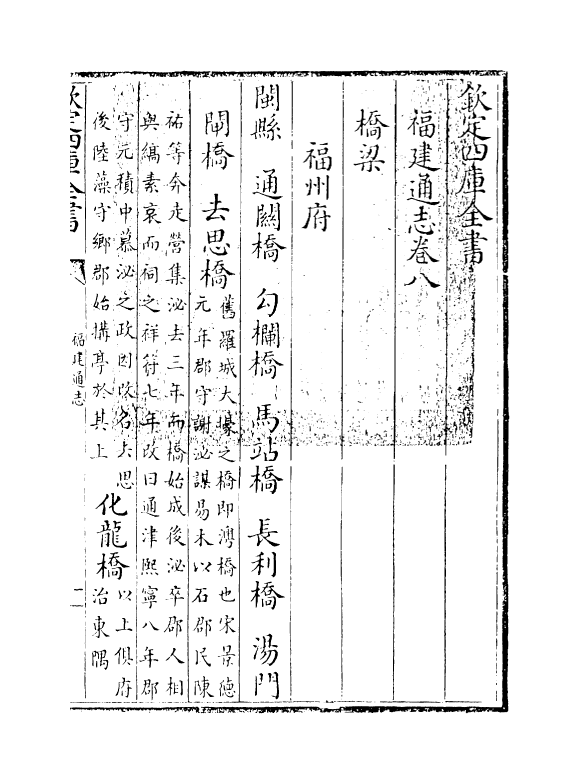 欽定四庫全書
福建通志卷八
橋梁
福州府
閩縣 通闗橋 勾欄橋 馬站橋 長利橋 湯門
閘橋 去思橋 舊羅城大壕之橋即灣橋也宋景德
元年郡守謝泌謀易木以石郡民陳
祐等奔走營集泌去三年而橋始成後泌卒郡人相
與縞素哀而祠之祥符七年改曰通津熙寧八年郡
守元積中慕泌之政因改名去思
後陸藻守鄉郡始搆亭於其上
化龍橋 以上俱府
治東隅
欽定四庫全書
福建通志